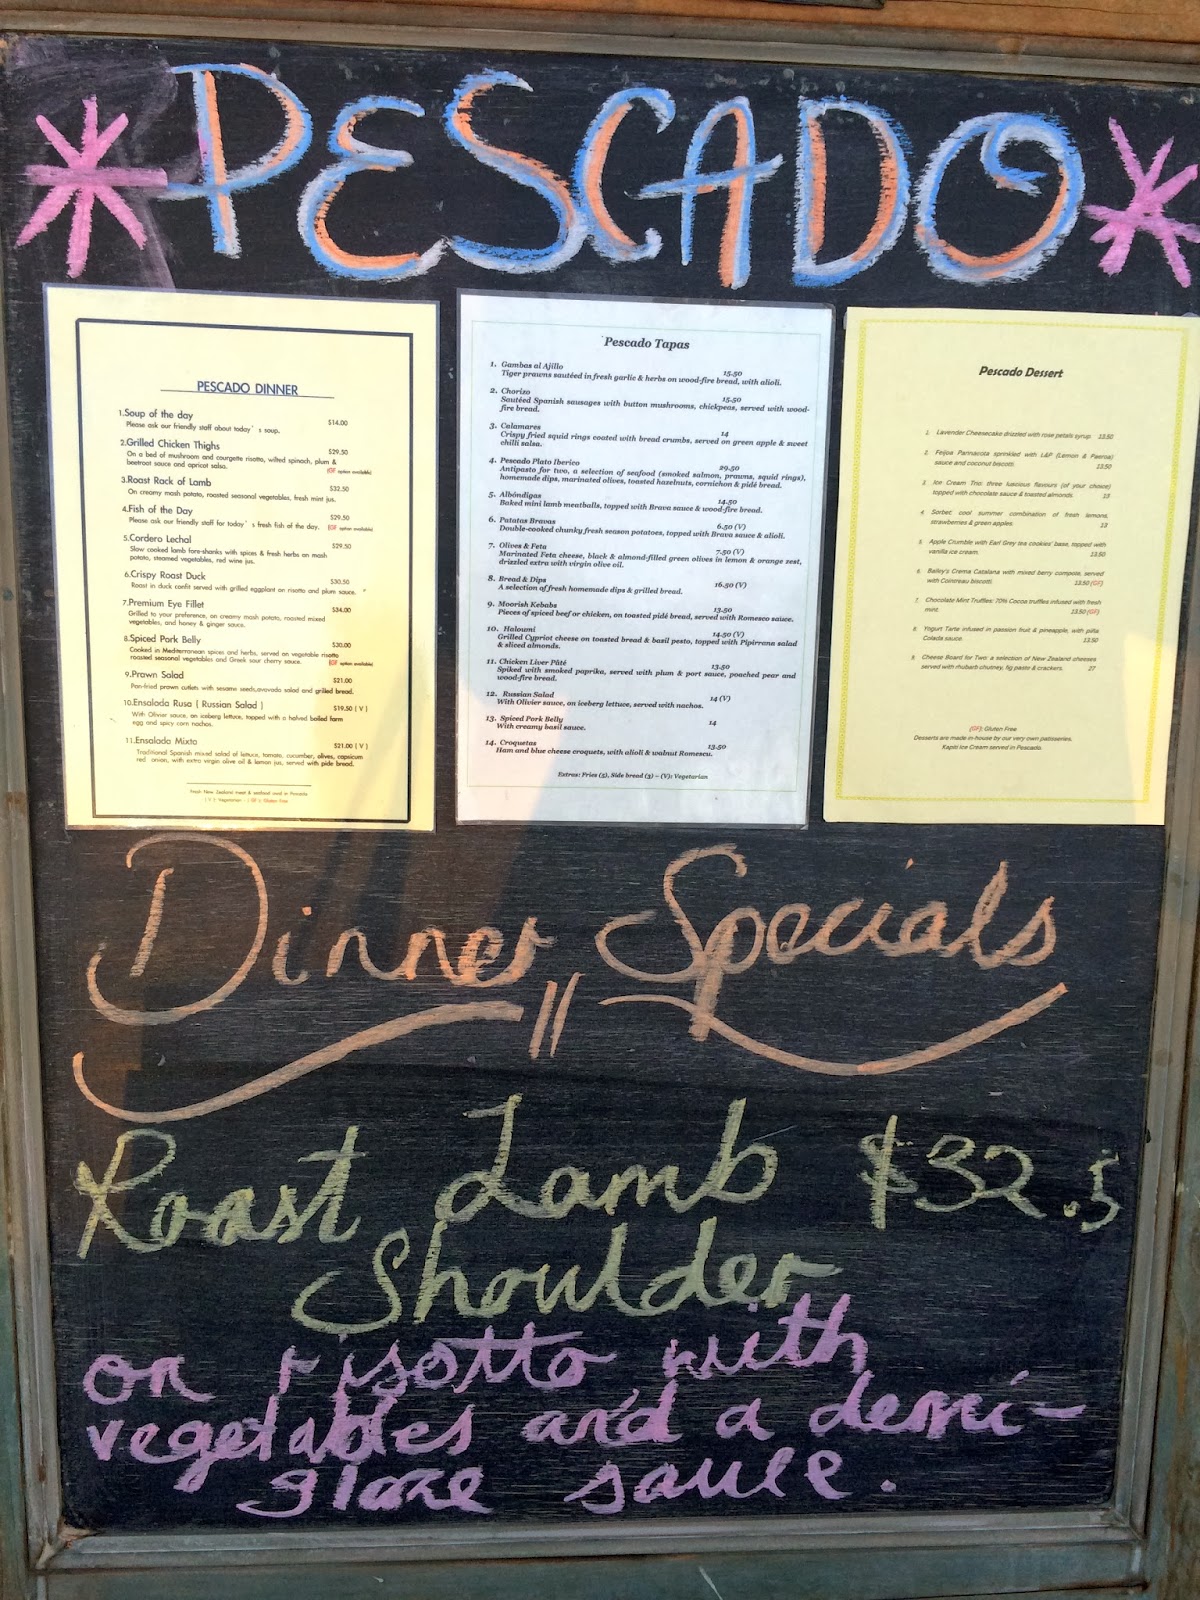 PESCADO
PESCADO DINNER
1.Soup of the day $14.00
Please ask our friendly staff about today's soup.
2.Grilled Chicken Thighs $29.50
On a bed of mushroom and courgette risotto, wilted spinach, plum &
beetroot sauce and apricot salsa. (GF option available)
3.Roast Rack of Lamb $32.50
On creamy mash potato, roasted seasonal vegetables, fresh mint jus.
4.Fish of the Day $29.50
Please ask our friendly staff for today's fresh fish of the day. (GF option available)
5.Cordero Lechal $29.50
Slow cooked lamb fore-shanks with spices & fresh herbs on mash
potato, steamed vegetables, red wine jus.
6.Crispy Roast Duck $30.50
Roast in duck confit served with grilled eggplant on risotto and plum sauce.
7.Premium Eye Fillet $34.00
Grilled to your preference, on creamy mash potato, roasted mixed
vegetables, and honey & ginger sauce.
8.Spiced Pork Belly $30.00
Cooked in Mediterranean spices and herbs, served on vegetable risotto
roasted seasonal vegetables and Greek sour cherry sauce. (GF option available)
9.Prawn Salad $21.00
Pan-fried prawn cutlets with sesame seeds,avovado salad and grilled bread.
10.Ensalada Rusa ( Russian Salad ) $19.50 ( V )
With Olivier sauce, on iceberg lettuce, topped with a halved boiled farm
egg and spicy corn nachos.
11.Ensalada Mixta $21.00 ( V )
Traditional Spanish mixed salad of lettuce, tomato, cucumber, olives, capsicum
red onion, with extra virgin olive oil & lemon jus, served with pide bread.
Fresh New Zealand meat & seafood used in Pescado
( V ): Vegetarian - ( GF ): Gluten Free
Pescado Tapas
1. Gambas al Ajillo 15.50
Tiger prawns sautéed in fresh garlic & herbs on wood-fire bread, with alioli.
2. Chorizo 15.50
Sautéed Spanish sausages with button mushrooms, chickpeas, served with wood-
fire bread.
3. Calamares 14
Crispy fried squid rings coated with bread crumbs, served on green apple & sweet
chilli salsa.
4. Pescado Plato Iberico 29.50
Antipasto for two, a selection of seafood (smoked salmon, prawns, squid rings),
homemade dips, marinated olives, toasted hazelnuts, cornichon & pidé bread.
5. Albóndigas 14.50
Baked mini lamb meatballs, topped with Brava sauce & wood-fire bread.
6. Patatas Bravas 6.50 (V)
Double-cooked chunky fresh season potatoes, topped with Brava sauce & alioli.
7. Olives & Feta 7.50 (V)
Marinated Feta cheese, black & almond-filled green olives in lemon & orange zest,
drizzled extra with virgin olive oil.
8. Bread & Dips 16.50 (V)
A selection of fresh homemade dips & grilled bread.
9. Moorish Kebabs 13.50
Pieces of spiced beef or chicken, on toasted pidé bread, served with Romesco sauce.
10. Haloumi 14.50 (V)
Grilled Cypriot cheese on toasted bread & basil pesto, topped with Pipirrana salad
& sliced almonds.
11. Chicken Liver Pâté 13.50
Spiked with smoked paprika, served with plum & port sauce, poached pear and
wood-fire bread.
12. Russian Salad 14 (V)
With Olivier sauce, on iceberg lettuce, served with nachos.
13. Spiced Pork Belly 14
With creamy basil sauce.
14. Croquetas 13.50
Ham and blue cheese croquets, with alioli & walnut Romescu.
Extras: Fries (5), Side bread (3) – (V): Vegetarian
Pescado Dessert
1. Lavender Cheesecake drizzled with rose petals syrup 13.50
2. Feijoa Pannacota sprinkled with L&P (Lemon & Paeroa)
sauce and coconut biscotti. 13.50
3. Ice Cream Trio: three luscious flavours (of your choice)
topped with chocolate sauce & toasted almonds 13
4. Sorbet: cool summer combination of fresh lemons,
strawberries & green apples. 13
5. Apple Crumble with Earl Grey tea cookies' base, topped with
vanilla ice cream. 13.50
6. Bailey's Crema Catalana with mixed berry compote, served
with Cointreau biscotti. 13.50 (GF)
7. Chocolate Mint Truffles: 70% Cocoa truffles infused with fresh
mint. 13.50 (GF)
8. Yogurt Tarte infused in passion fruit & pineapple, with piña
Colada sauce. 13.50
9. Cheese Board for Two: a selection of New Zealand cheeses
served with rhubarb chutney, fig paste & crackers. 27
(GF): Gluten Free
Desserts are made in-house by our very own patisseries.
Kapiti Ice Cream served in Pescado.
Dinner Specials
Roast Lamb $32.5
Shoulder
on risotto with
vegetables and a demi-
glaze sauce.